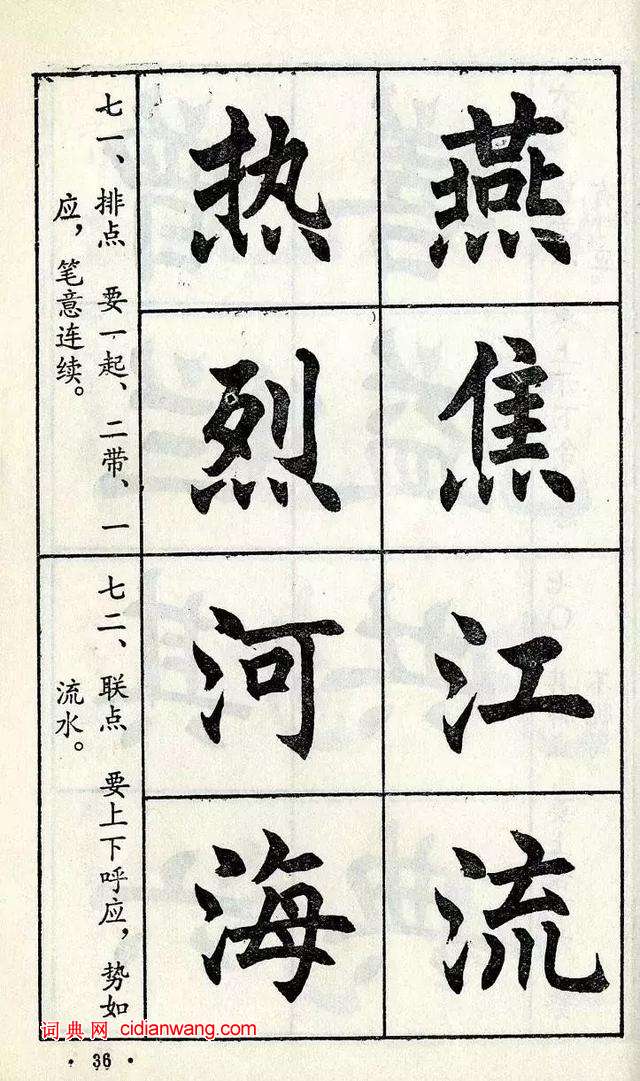 燕焦
热烈
七一、排点 要一起、二带、一
应，笔意连续。
江流
河海
七二、联点 要上下呼应，势如
流水。
词典网 cidianwang.com
· 36 ·